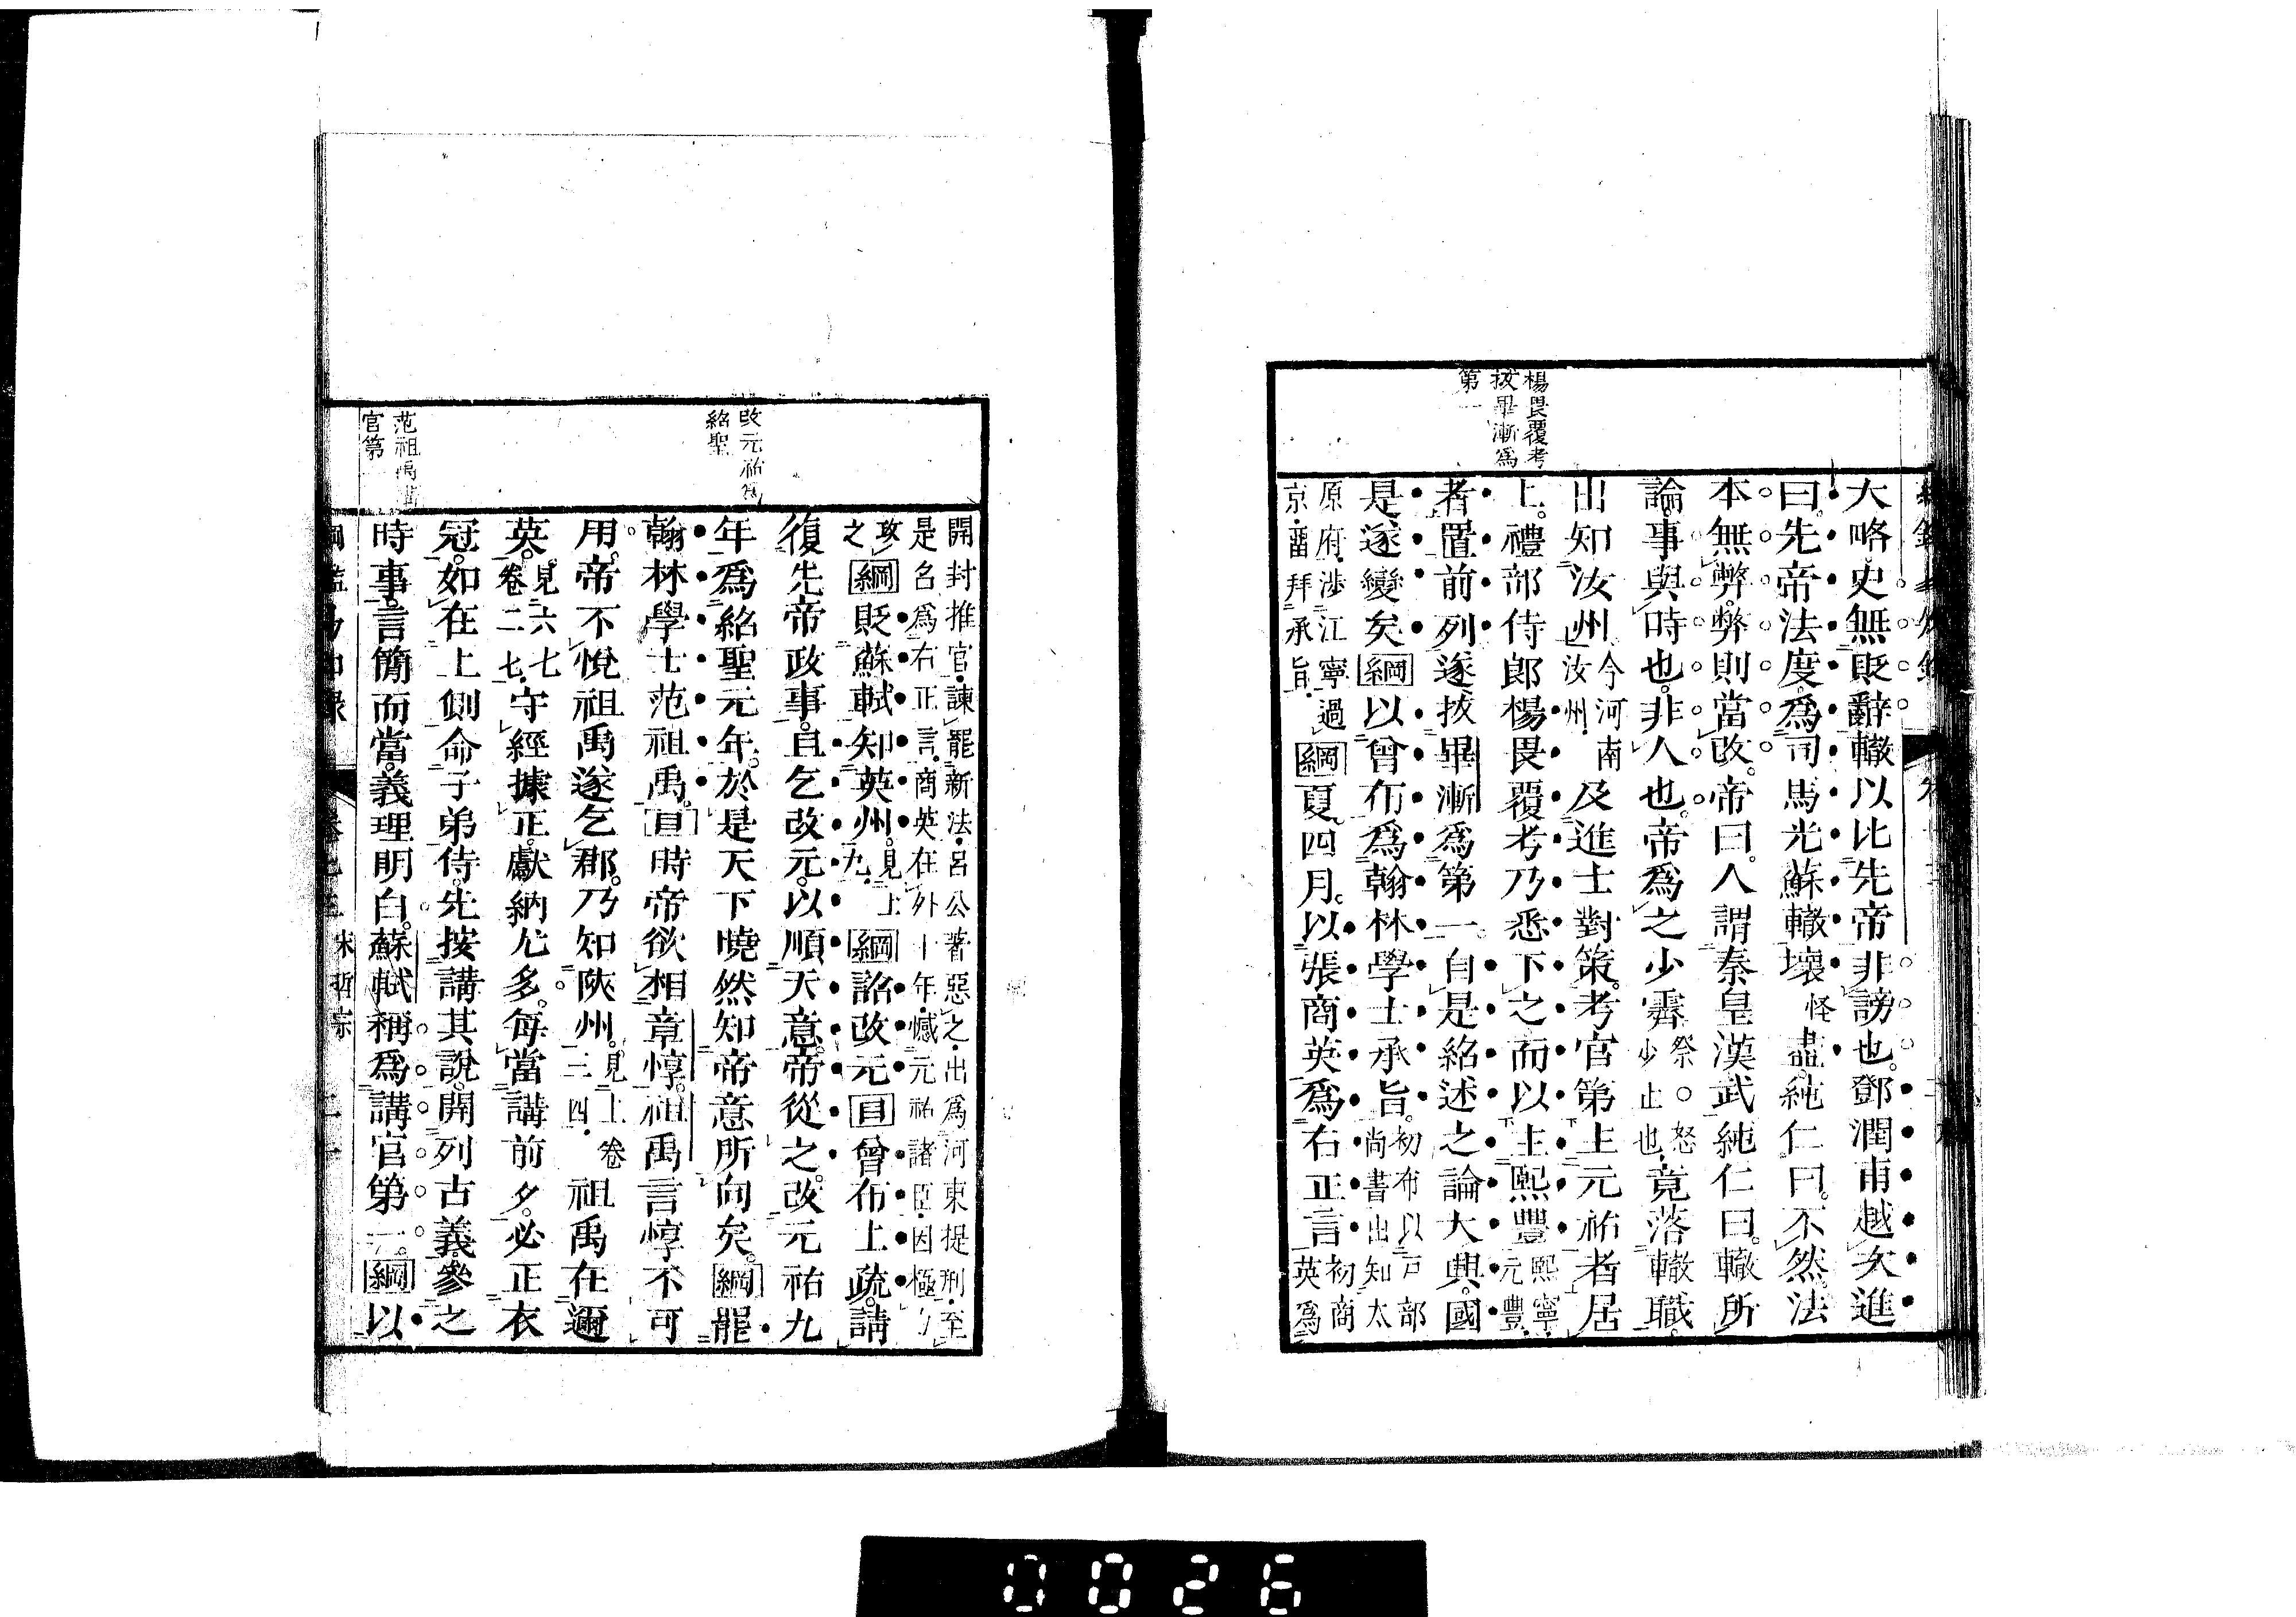 楊畏覆考
拔畢漸爲
第一
大略史無貶辭轍以比先帝非謗也鄧潤甫越次進
曰先帝法度爲司馬光蘇轍壞怪盡純仁曰不然法
本無弊弊則當改帝曰人謂秦皇漢武純仁曰轍所
論事與時也非人也帝爲之少霽祭○怒少止也竟落轍職
出知汝州今河南汝州及進士對策考官第主元祐者居
上禮部侍郎楊畏覆考乃悉下之而以主熙豐熙寧元豐
者置前列遂拔畢漸爲第一自是紹述之論大興國
是遂變矣綱以曾布爲翰林學士承旨初布以戸部尚書出知太
原府渉江寧過京畱拜承旨綱夏四月以張商英爲右正言初商英爲
改元祐爲
紹聖
范祖禹講
官第一
開封推官諫罷新法呂公著惡之出爲河東提刑至
是召爲右正言商英在外十年憾元祐諸臣因極力
攻之綱貶蘇軾知英州見上九綱詔改元目曾布上疏請
復先帝政事且乞改元以順天意帝從之改元祐九
年爲紹聖元年於是天下曉然知帝意所向矣綱罷
翰林學士范祖禹目時帝欲相章惇祖禹言惇不可
用帝不悅祖禹遂乞郡乃知陝州見上卷三四祖禹在邇
英見六七卷二七守經據正獻納尤多每當講前夕必正衣
冠如在上側命子弟侍先按講其說開列古義參之
時事言簡而當義理明白蘇軾稱爲講官第一綱以
宋哲宗